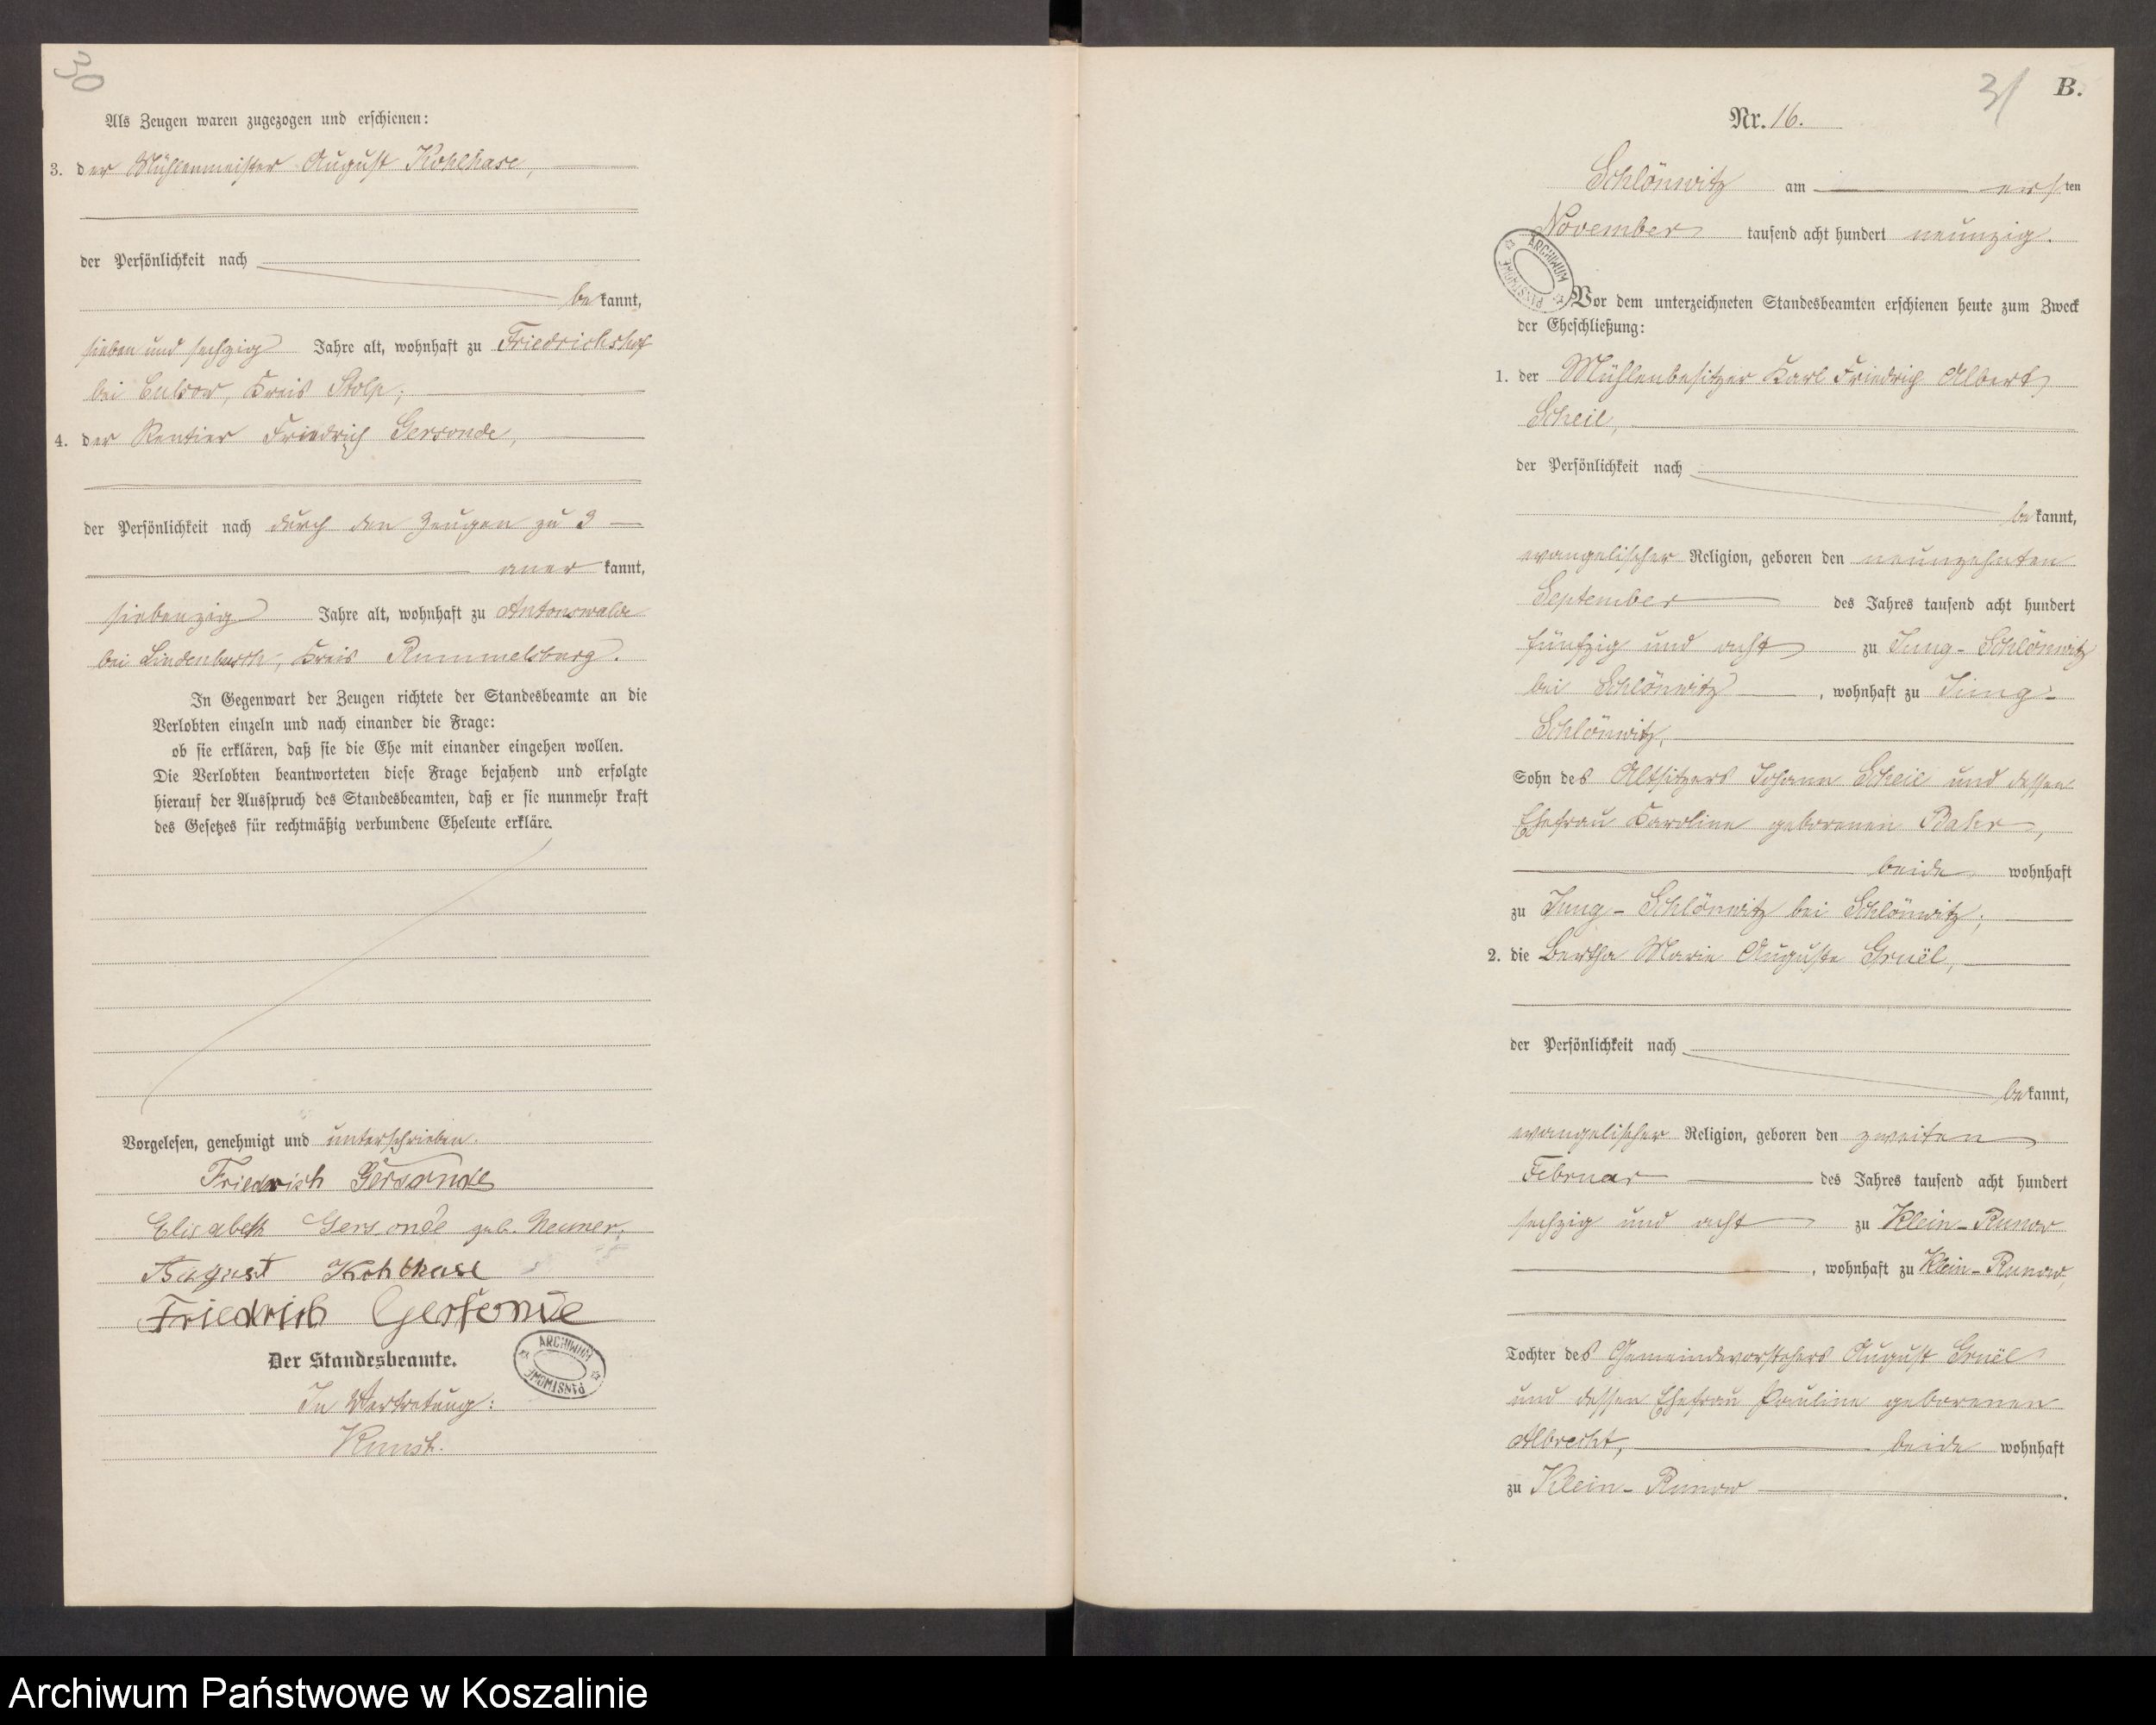 30
Als Zeugen waren zugezogen und erschienen:
3. der Mühlenmeister August Kohlhase,
der Persönlichkeit nach
bekannt,
sieben und sechzig Jahre alt, wohnhaft zu Friedrichshof
bei Culsow, Kreis Stolp;
4. der Rentier Friedrich Gersonde,
der Persönlichkeit nach durch den Zeugen zu 3
anerkannt,
siebenzig Jahre alt, wohnhaft zu Antonswalde
bei Lindenbusch, Kreis Rummelsburg.
In Gegenwart der Zeugen richtete der Standesbeamte an die
Verlobten einzeln und nach einander die Frage:
ob sie erklären, daß sie die Ehe mit einander eingehen wollen.
Die Verlobten beantworteten diese Frage bejahend und erfolgte
hierauf der Ausspruch des Standesbeamten, daß er sie nunmehr kraft
des Gesetzes für rechtmäßig verbundene Eheleute erkläre.
Vorgelesen, genehmigt und unterschrieben.
Friedrich Gersonde
Elisabeth Gersonde geb.
August Kohlhase
Friedrich Gersonde
Der Standesbeamte.
ARCHIWUM PAŃSTWOWE
In Vertretung:
31
B.
Nr. 16.
Schlönwitz am ersten
November tausend acht hundert neunzig.
ARCHIWUM PAŃSTWOWE
Vor dem unterzeichneten Standesbeamten erschienen heute zum Zweck
der Eheschließung:
1. der Mühlenbesitzer Karl Friedrich Albert
Scheil,
der Persönlichkeit nach
bekannt,
evangelischer Religion, geboren den neunzehnten
September des Jahres tausend acht hundert
fünfzig und acht zu Jung-Schlönwitz
bei Schlönwitz, wohnhaft zu Jung-
Schlönwitz,
Sohn des Altsitzers Johann Scheil und dessen
Ehefrau Karoline geborenen Bahr,
beide wohnhaft
zu Jung-Schlönwitz bei Schlönwitz;
2. die Bertha Marie Auguste Gruël,
der Persönlichkeit nach
bekannt,
evangelischer Religion, geboren den zweiten
Februar des Jahres tausend acht hundert
sechzig und acht zu Klein-Runow
, wohnhaft zu Klein-Runow,
Tochter des Gemeindevorstehers August Gruël
und dessen Ehefrau Pauline geborenen
Albrecht, beide wohnhaft
zu Klein-Runow.
Archiwum Państwowe w Koszalinie